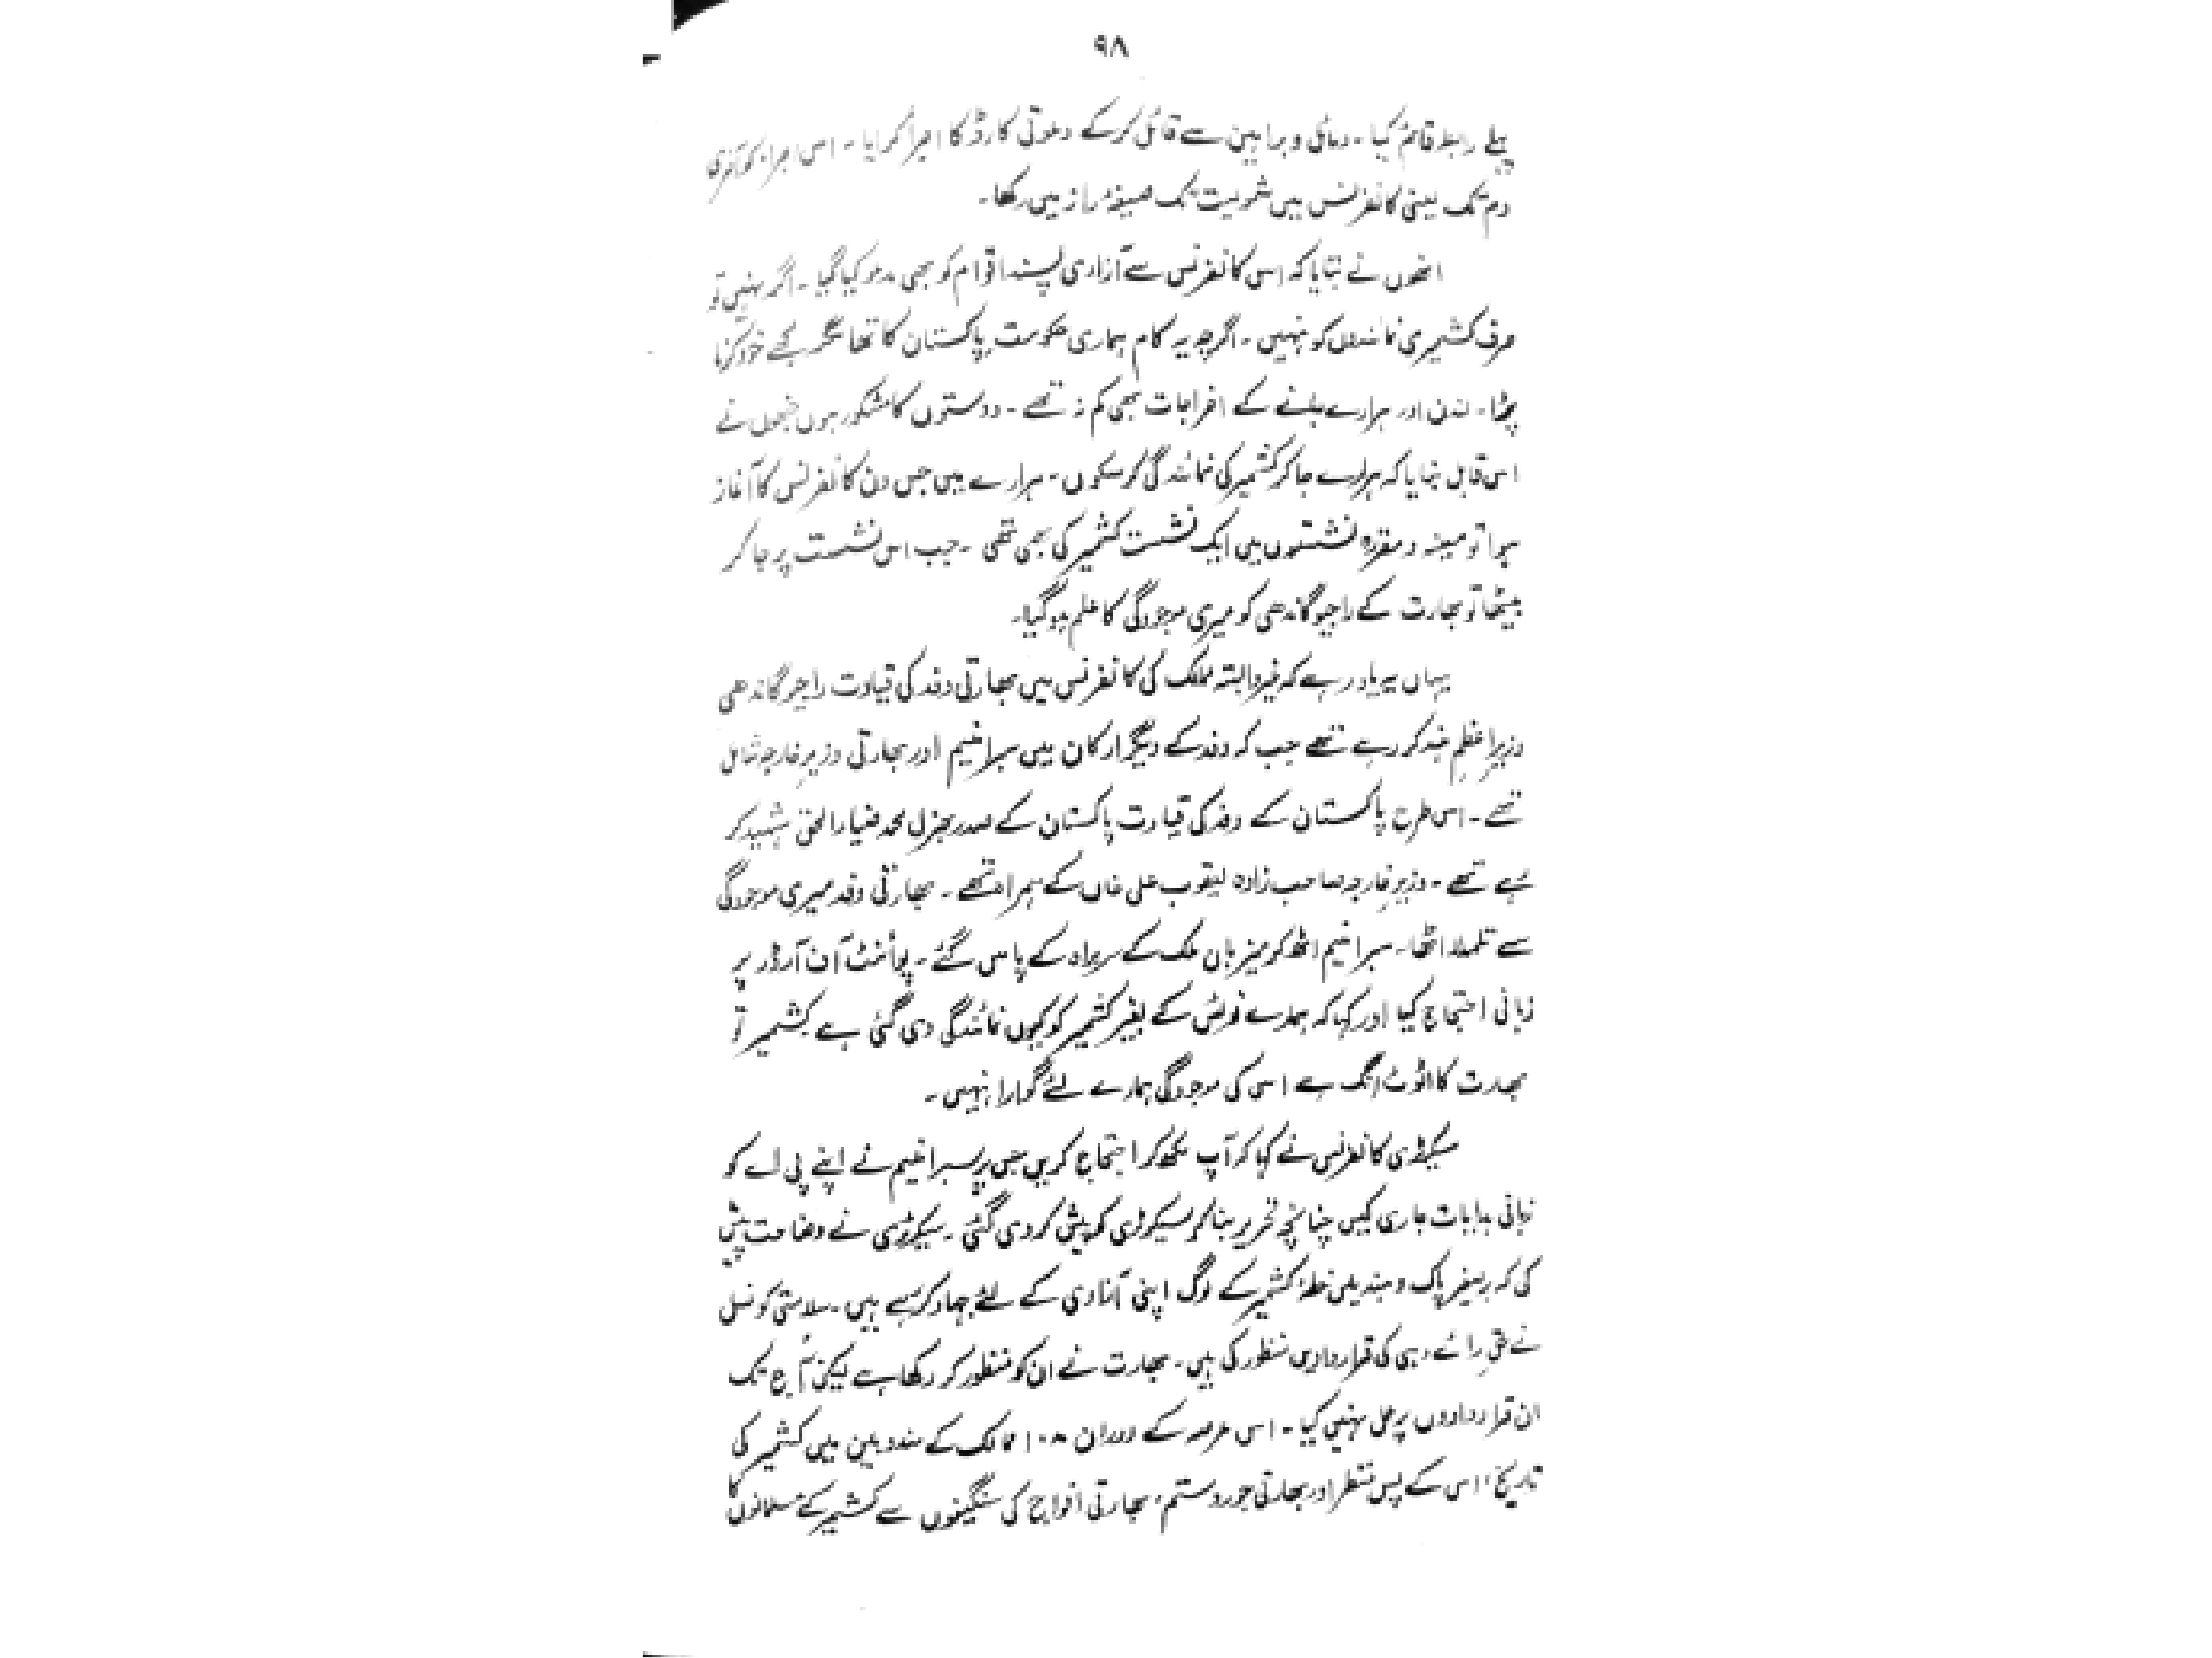 ۹۸
پہلے رابطہ قائم کیا ۔ دلائل و براہین سے قائل کرکے دعوتی کارڈ کا اجرا کرایا ۔ اس اجراء کو آخری
دم تک یعنی کانفرنس میں شمولیت تک صیغۂ راز میں رکھا ۔
انھوں نے بتایا کہ اس کانفرنس سے آزادی پسند اقوام کو بھی مدعو کیا گیا ۔ اگر نہیں تو
صرف کشمیری نمائندوں کو نہیں ۔ اگرچہ یہ کام ہماری حکومت پاکستان کا تھا مگر مجھے خود کرنا
پڑا ۔ لندن اور ہرارے جانے کے اخراجات بھی کم نہ تھے ۔ دوستوں کا مشکور ہوں جنھوں نے
اس قابل بنایا کہ ہرارے جا کر کشمیر کی نمائندگی کر سکوں ۔ ہرارے میں جس دن کانفرنس کا آغاز
ہوا تو معینہ و مقررہ نشستوں میں ایک نشست کشمیر کی بھی تھی ۔ جب اس نشست پر جا کر
بیٹھا تو بھارت کے راجیو گاندھی کو میری موجودگی کا علم ہوگیا ۔
یہاں یہ یاد رہے کہ غیر وابستہ ممالک کی کانفرنس میں بھارتی وفد کی قیادت راجیو گاندھی
وزیراعظم ہند کر رہے تھے جب کہ وفد کے دیگر ارکان میں سبرامنیم اور بھارتی وزیر خارجہ شامل
تھے ۔ اسی طرح پاکستان کے وفد کی قیادت پاکستان کے صدر جنرل محمد ضیاء الحق شہید کر
رہے تھے ۔ وزیر خارجہ صاحب زادہ یعقوب علی خاں کے ہمراہ تھے ۔ بھارتی وفد میری موجودگی
سے تلملا اٹھا ۔ سبرامنیم اٹھ کر میزبان ملک کے سربراہ کے پاس گئے ۔ پوائنٹ آف آرڈر پر
زبانی احتجاج کیا اور کہا کہ ہمارے نوٹس کے بغیر کشمیر کو کیوں نمائندگی دی گئی ہے کشمیر تو
بھارت کا اٹوٹ انگ ہے اس کی موجودگی ہمارے لئے گوارا نہیں ۔
سیکرٹری کانفرنس نے کہا کہ آپ لکھ کر احتجاج کریں جس پر سبرامنیم نے اپنے پی اے کو
زبانی ہدایات جاری کیں چنانچہ تحریر بنا کر سیکرٹری کو پیش کر دی گئی ۔ سیکرٹری نے وضاحت پیش
کی کہ برصغیر پاک و ہند میں خطۂ کشمیر کے لوگ اپنی آزادی کے لئے جہاد کر رہے ہیں ۔ سلامتی کونسل
نے حق رائے دہی کی قراردادیں منظور کی ہیں ۔ بھارت نے ان کو منظور کر رکھا ہے لیکن آج تک
ان قراردادوں پر عمل نہیں کیا ۔ اسی عرصہ کے دوران ۱۰۸ ممالک کے مندوبین میں کشمیر کی
تاریخ، اس کے پس منظر اور بھارتی جوروستم، بھارتی افواج کی سنگینوں سے کشمیر کے مسلمانوں کا